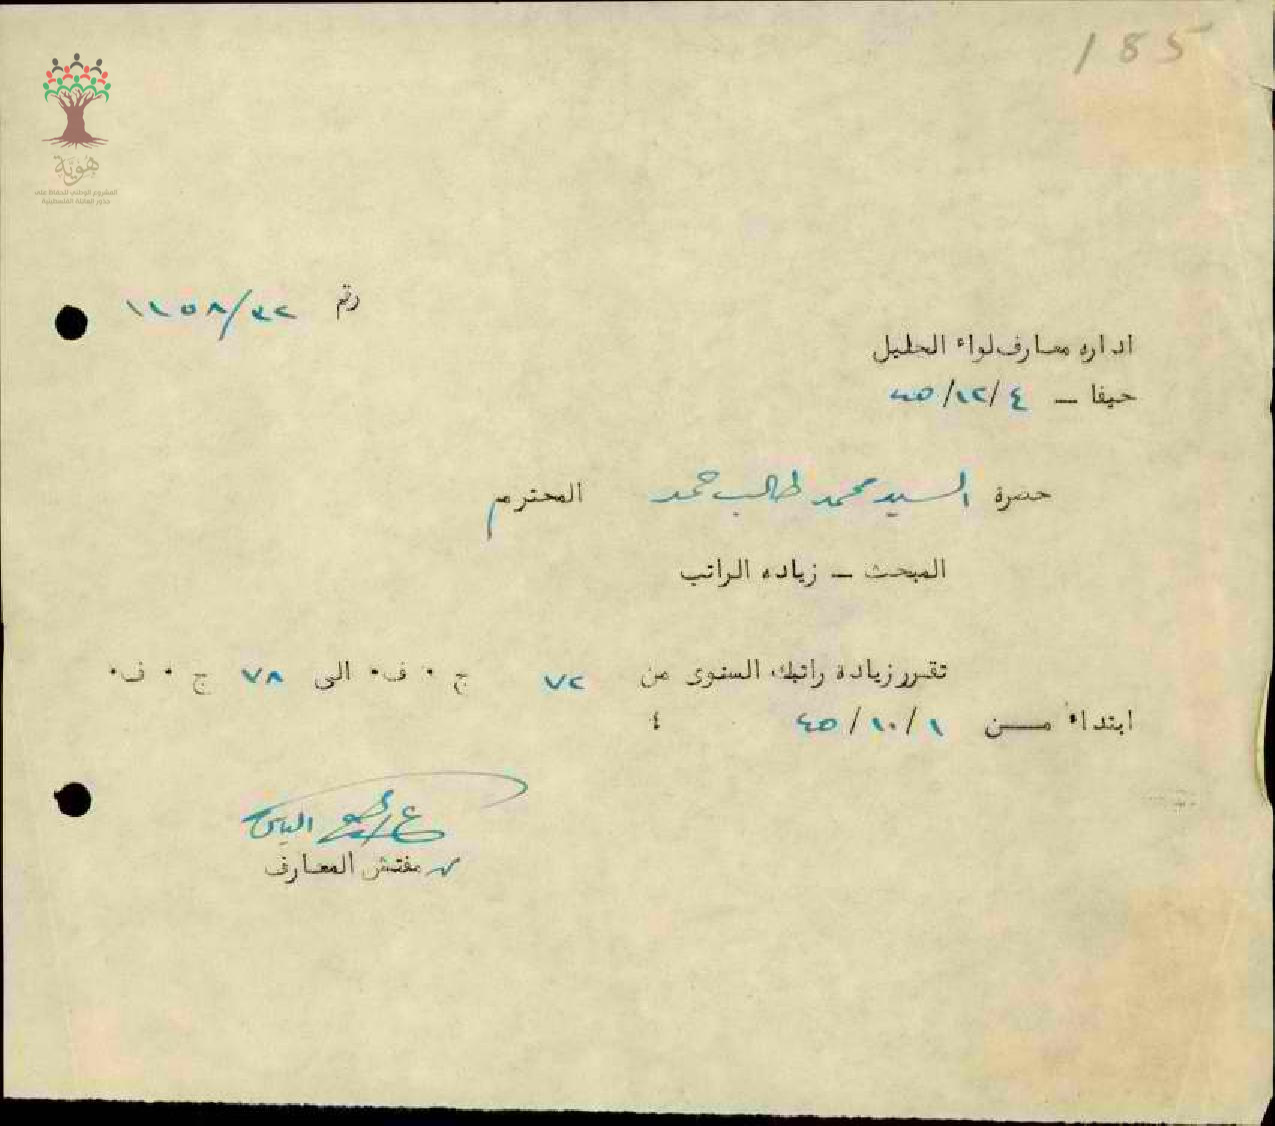 185
هوية
المشروع الوطني للحفاظ على
جذور العائلة الفلسطينية
رقم ١١٥٨/٣٢
اداره معارف لواء الجليل
حيفا — ٤/١٢/٤٥
حضرة السيد محمد طالب حمد المحترم
المبحث — زياده الراتب
تقرر زيادة راتبك السنوى من ٧٢ ج ٠ ف٠ الى ٧٨ ج ٠ ف٠
ابتداء من ١/١٠/٤٥ ٤
الياس
مفتش المعارف